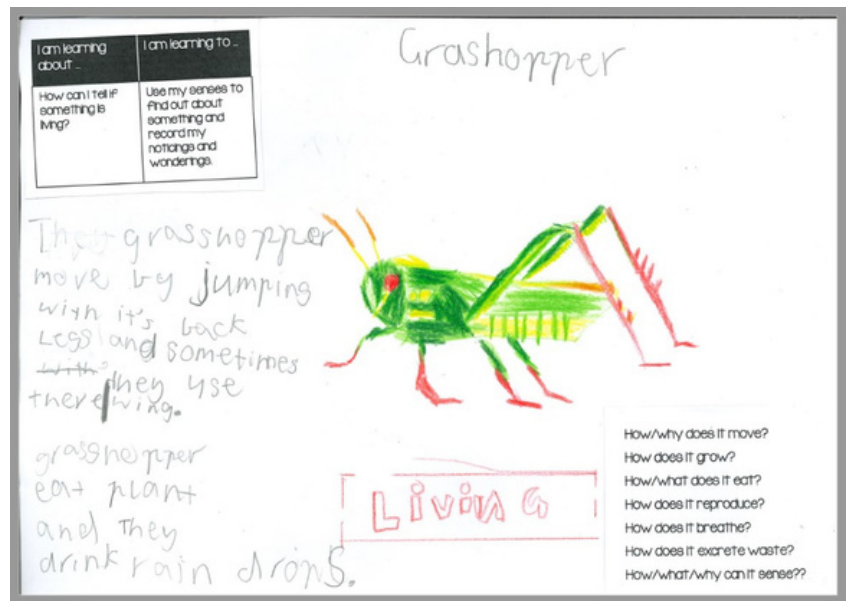 I am learning about ...
I am learning to ...
How can I tell if something is living?
Use my senses to find out about something and record my noticings and wonderings.
Grashopper
They grasshopper
move by jumping
with it's back
Legs and sometimes
with they use
there wing.
grasshopper
eat plant
and They
drink rain drops.
LiviNG
How/why does it move?
How does it grow?
How/what does it eat?
How does it reproduce?
How does it breathe?
How does it excrete waste?
How/what/why can it sense??